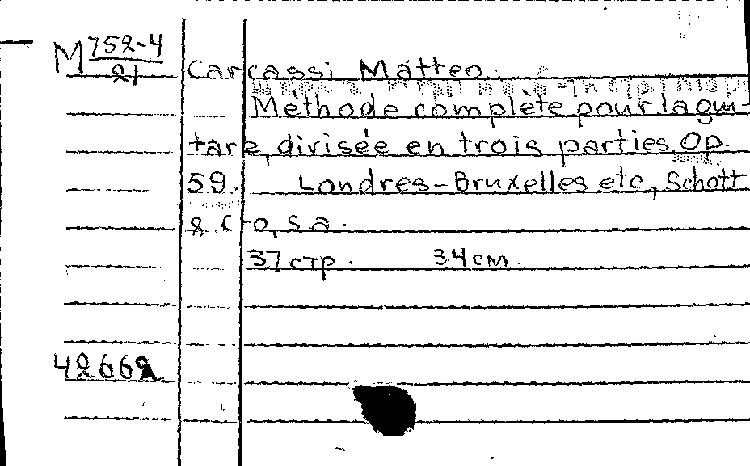 M 752-4
21
Carcassi Matteo.
Méthode complète pour la gui-
tare, divisée en trois parties Op.
59. Londres-Bruxelles etc, Schott
& Co, s.a.
37 стр. 34 см.
42662